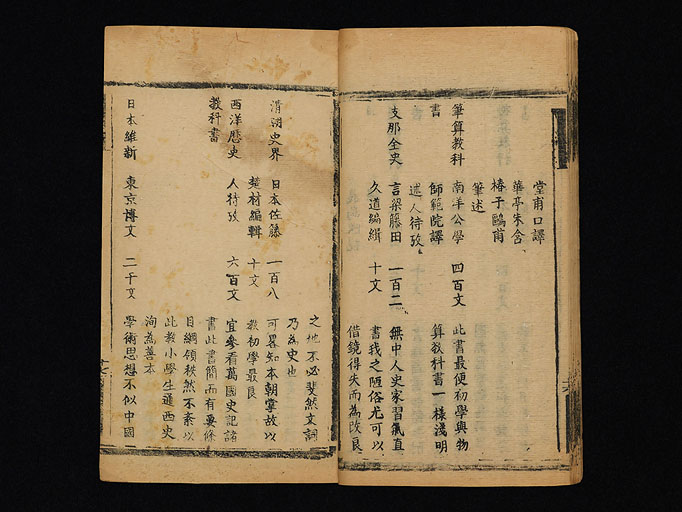 堂甫口譯
華亭朱含
椿子鷗甫
筆述
筆算教科
書
南洋公學
師範院譯
述人待攷
四百文
此書最便初學與物
算教科書一樣淺明
支那全史
言梁藤田
久道編緝
一百二
十文
無中人史家習氣直
書我之陋俗尤可以
借鏡得失而為改良
之地不必斐然文詞
乃為史也
清朝史界
日本佐藤
楚材編輯
一百八
十文
可畧知本朝掌故以
教初學最良
西洋歷史
教科書
人待攷
六百文
宜參看萬國史記諸
書此書簡而有要條
目綱領秩然不紊以
此教小學生通西史
洵為善本
日本維新
東京博文
二千文
學術思想不似中國